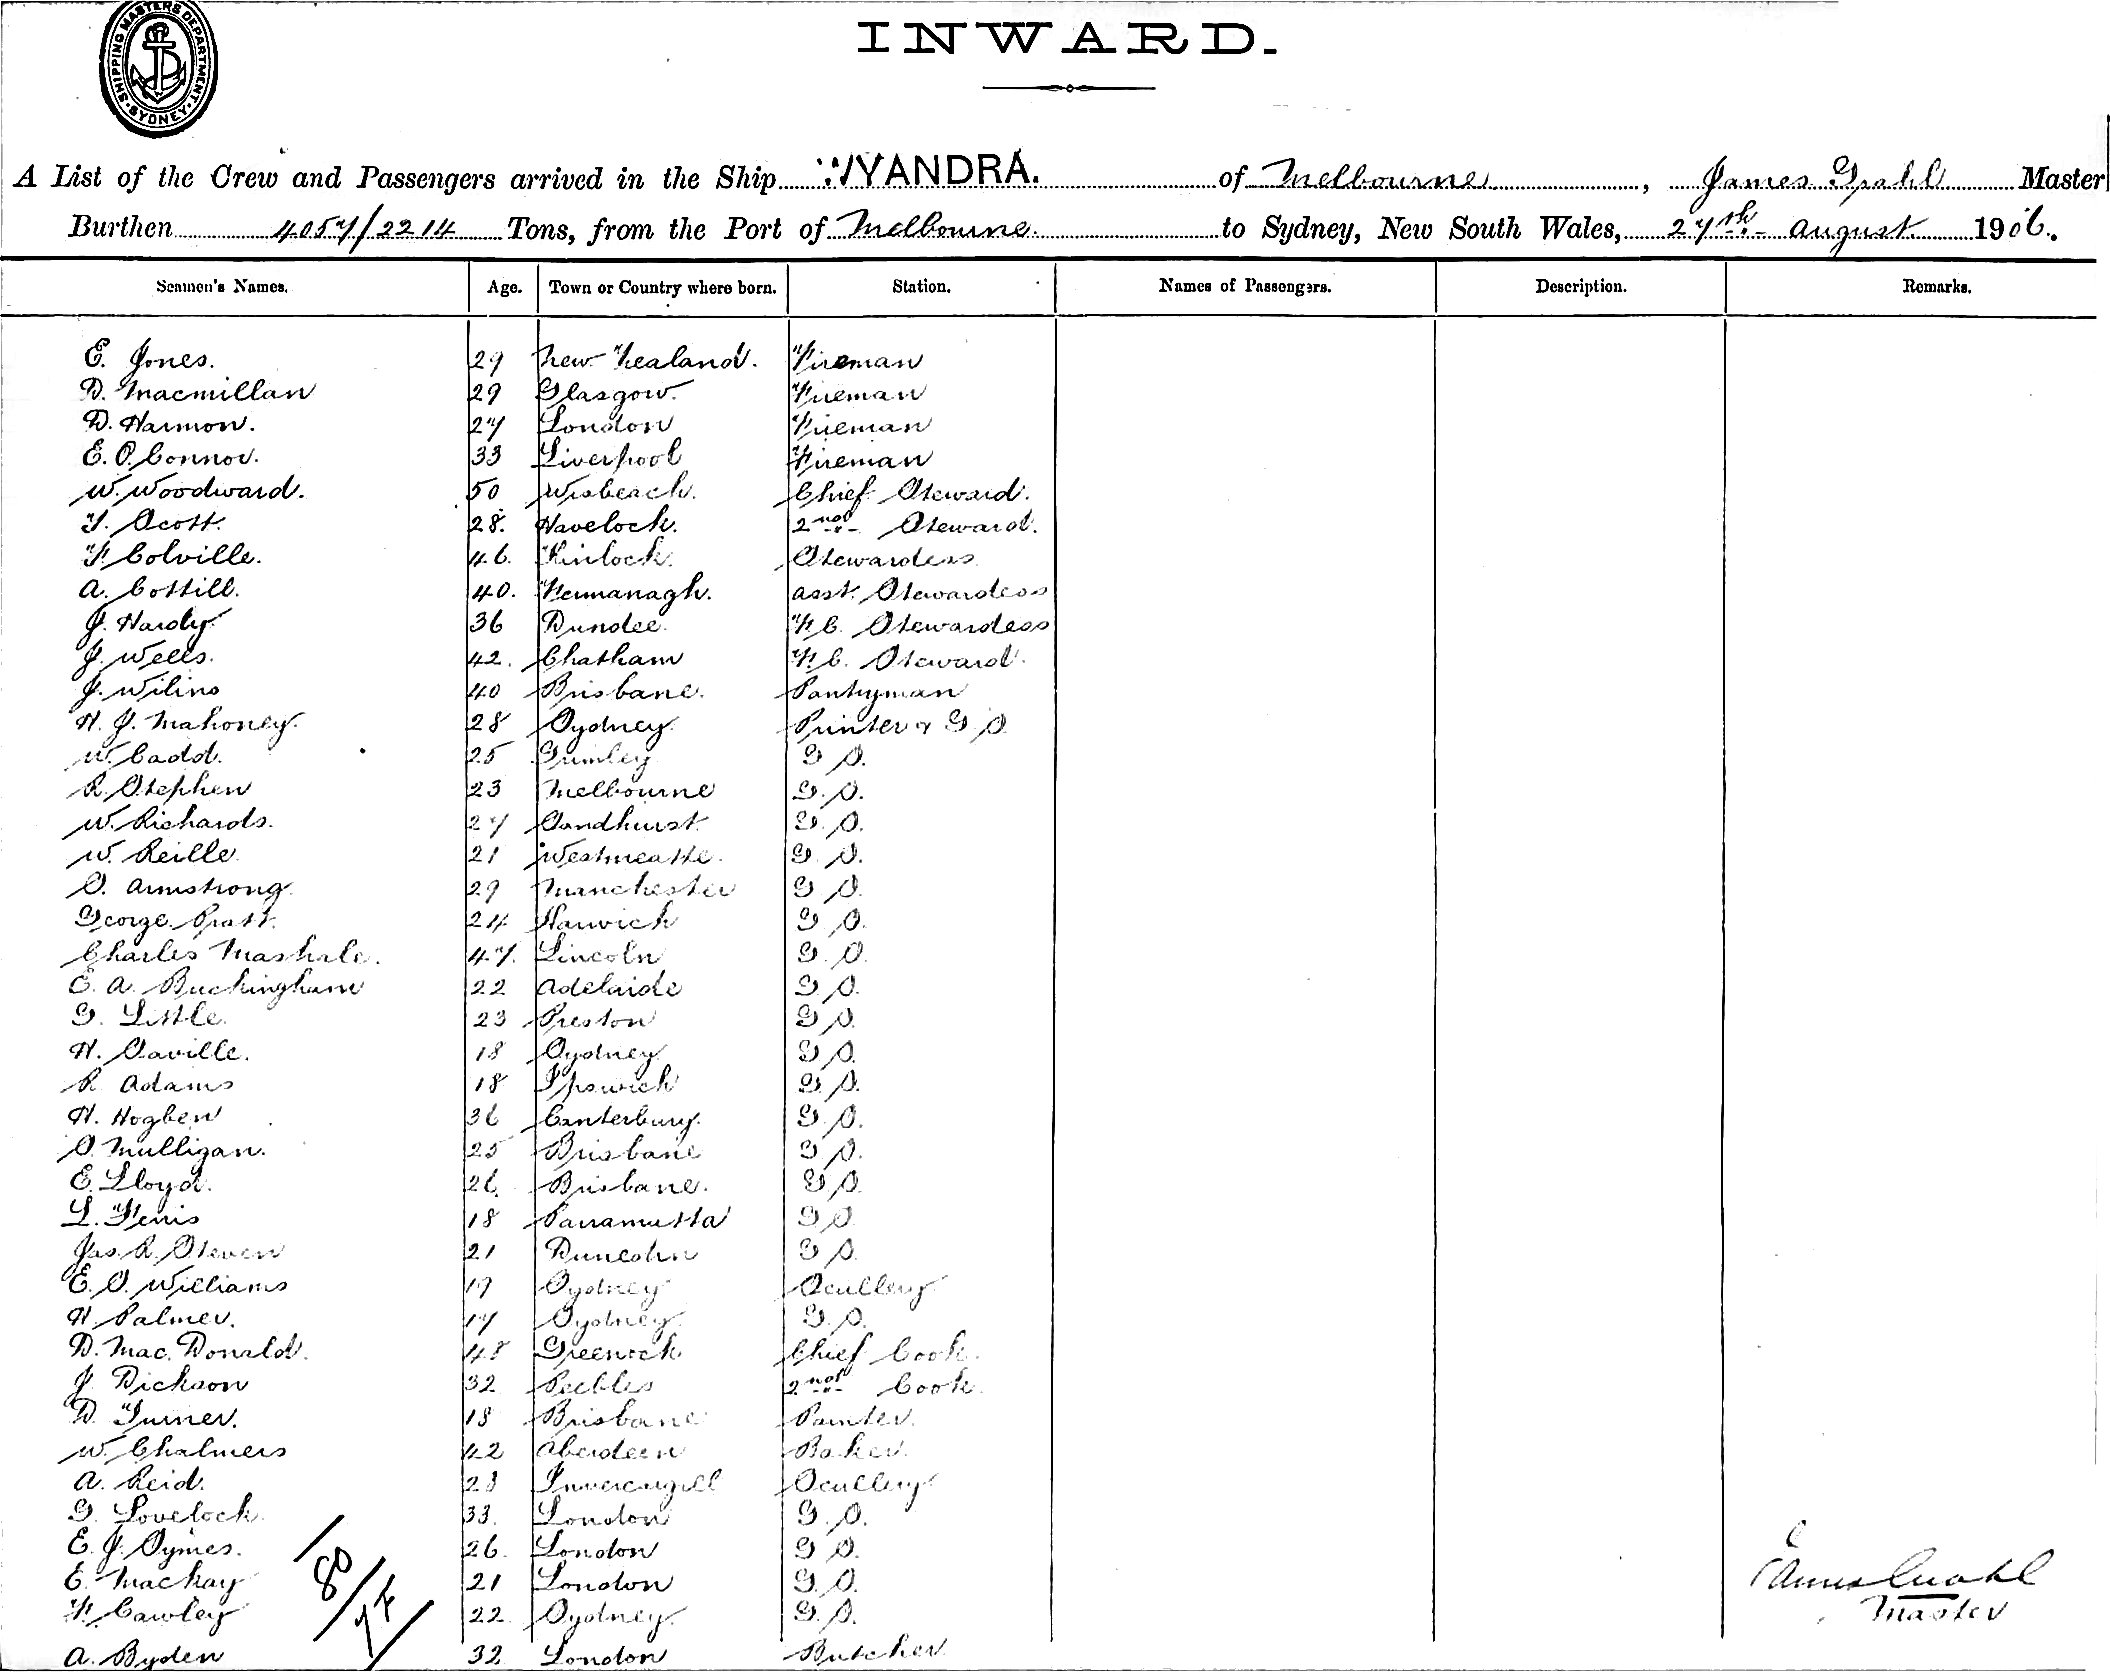 SHIPPING MASTERS DEPARTMENT. SYDNEY
INWARD.
A List of the Crew and Passengers arrived in the Ship WYANDRA. of Melbourne, James Grahl Master
Burthen 4057/2214 Tons, from the Port of Melbourne to Sydney, New South Wales, 27th August 1906.
Seamen's Names. Age. Town or Country where born. Station. Names of Passengers. Description. Remarks.
E. Jones. 29 New Zealand. Fireman
D. Macmillan 29 Glasgow. Fireman
D. Harmon. 27 London Fireman
E. O'Connor. 33 Liverpool Fireman
W. Woodward. 50 Wisbeach. Chief Steward.
T. Scott. 28. Havelock. 2nd Steward.
F. Colville. 46. Kinlock. Stewardess
A. Cottill. 40. Fermanagh. Asst. Stewardess
J. Hardy. 36 Dundee. F.C. Stewardess
J. Wells. 42. Chatham F.C. Steward.
J. Wilins 40 Brisbane. Pantryman
H. J. Mahoney. 28 Sydney. Printer & G S.
W. Cadd. 25 G S.
R. Stephen 23 Melbourne G. S.
W. Richards. 27 Sandhurst G. S.
W. Reille. 21 Westmeath. G. S.
S. Armstrong. 29 Manchester G S.
George Pratt. 24 Harwich G S.
Charles 47. Lincoln G. S.
E. A. Buckingham 22 Adelaide G S.
G. Little. 23 Preston G S.
H. Saville. 18 Sydney G S.
R. Adams 18 Ipswich G. S.
H. Hogben 36 Canterbury. G. S.
S. Mulligan. 25 Brisbane G S.
E. Lloyd. 26. Brisbane. G S.
L. Ferris 18 Parramatta G S.
Jas. R. Steven 21 Dunedin G S.
E. S. Williams 19 Sydney Scullery
H. Palmer. 17 Sydney. G. S.
D. Mac. Donald. 48 Greenock Chief Cook.
J. Dickson 32 Peebles 2nd Cook.
D. Turner. 18 Brisbane Painter.
W. Chalmers 42 Aberdeen Baker.
A. Reid. 23 Invercargill Scullery
G. Lovelock. 33. London G. S.
E. J. Symes. 26. London G S.
E. Mackay 21 London G. S.
F. Cawley 22 Sydney. G. S.
A. Byden 32 London Butcher.
/80/74/
James Grahl
Master